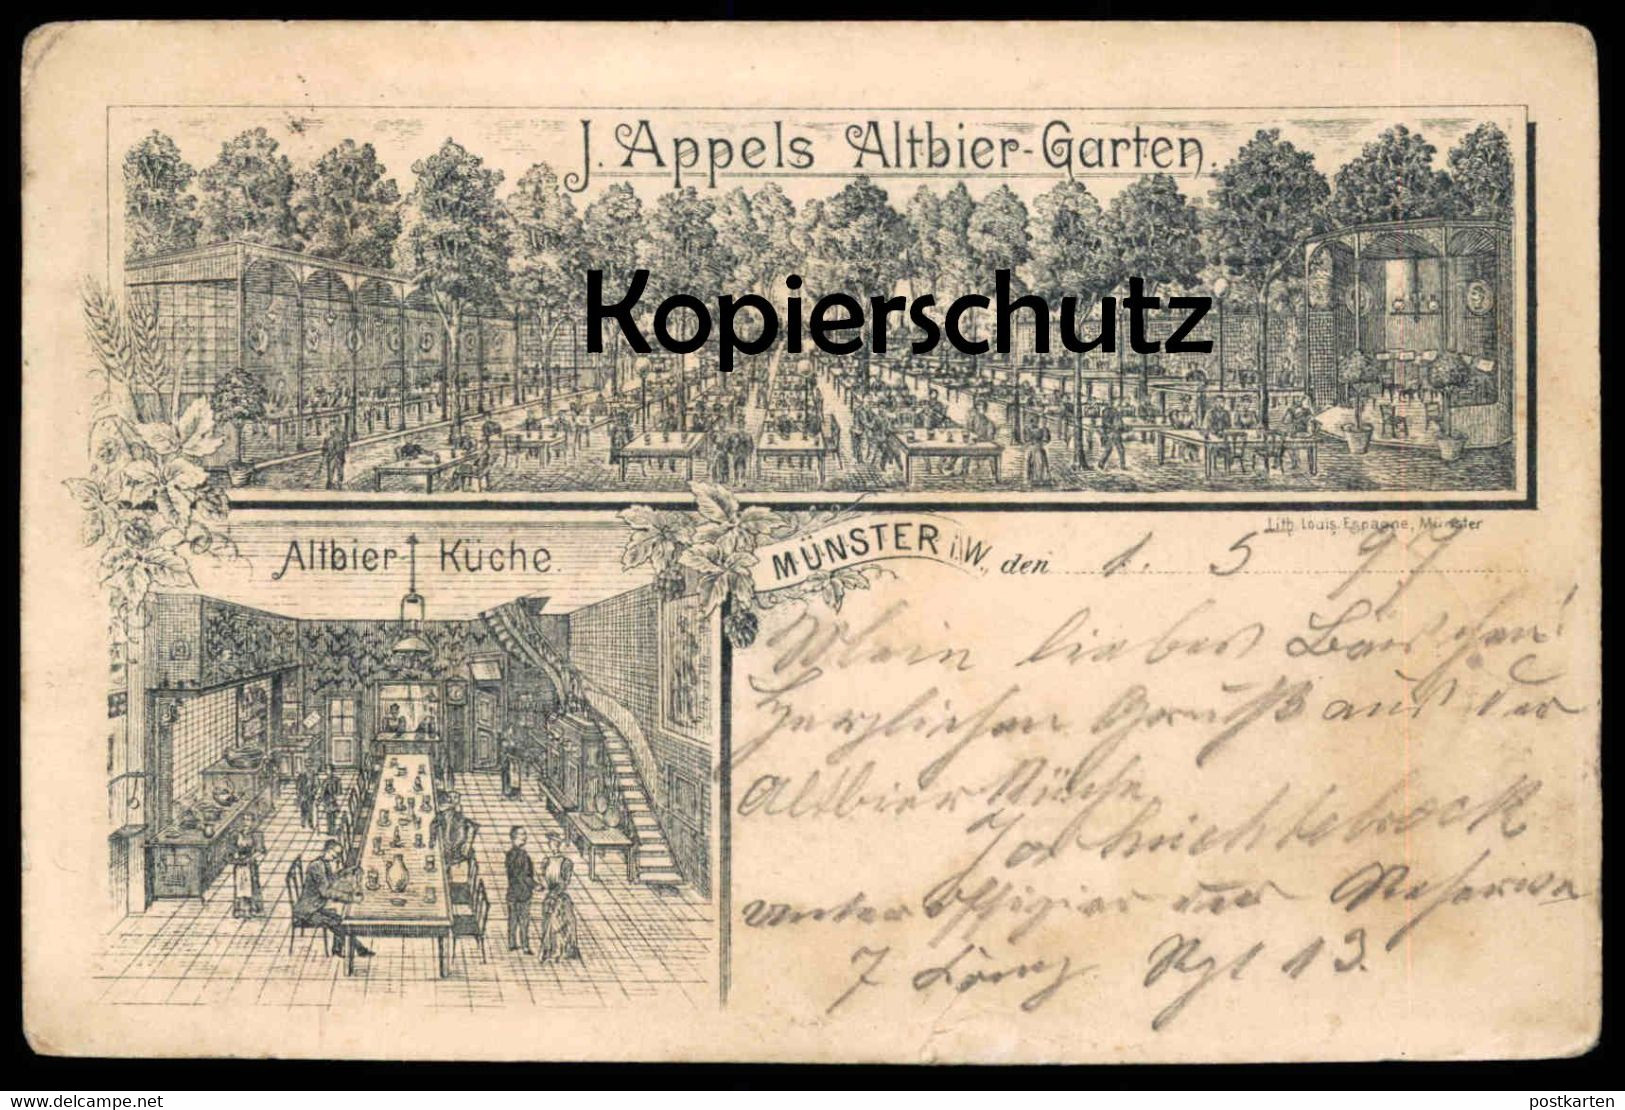 J. Appels Altbier-Garten.
Kopierschutz
Lith. Louis Espagne, Münster
Altbier-Küche.
MÜNSTER i/W., den 1. 5 97
Mein liebes Bärchen!
Herzlichen Gruß aus der
Altbier Küche
Jos
Unteroffizier der Reserve
7 Comp. Rgt 13.
www.delcampe.net
postkarten